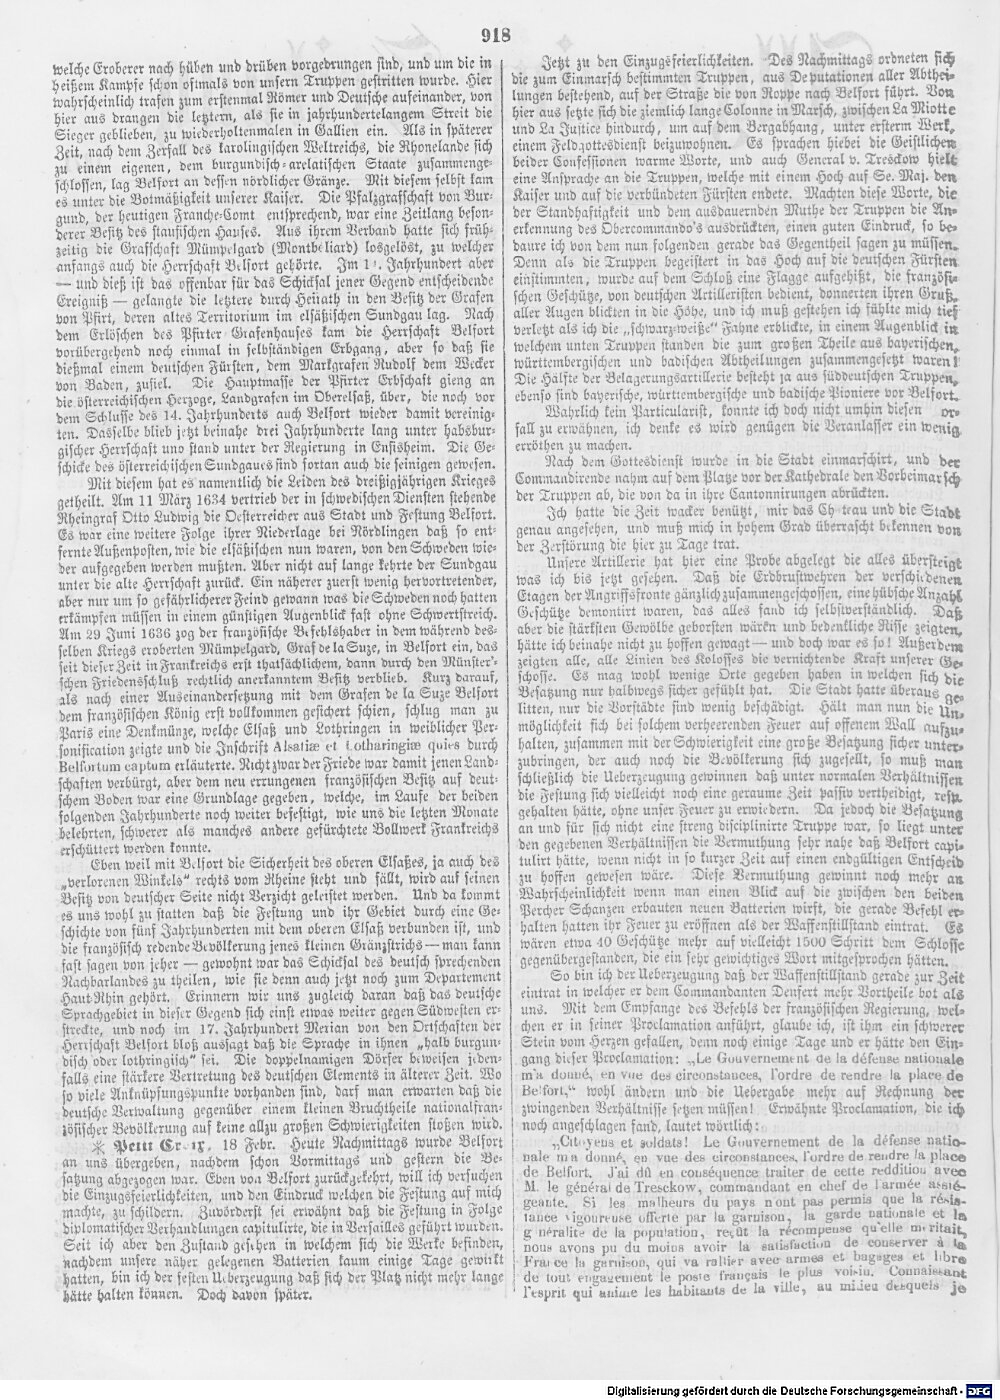 918
welche Eroberer nach hüben und drüben vorgedrungen sind, und um die in
heißem Kampfe schon oftmals von unsern Truppen gestritten wurde. Hier
wahrscheinlich trafen zum erstenmal Römer und Deutsche aufeinander, von
hier aus drangen die letztern, als sie in jahrhundertelangem Streit die
Sieger geblieben, zu wiederholtenmalen in Gallien ein. Als in späterer
Zeit, nach dem Zerfall des karolingischen Weltreichs, die Rhonelande sich
zu einem eigenen, dem burgundisch-arelatischen Staate zusammenge-
schlossen, lag Belfort an dessen nördlicher Gränze. Mit diesem selbst kam
es unter die Botmäßigkeit unserer Kaiser. Die Pfalzgrafschaft von Bur-
gund, der heutigen Franche-Comt entsprechend, war eine Zeitlang beson-
derer Besitz des staufischen Hauses. Aus ihrem Verband hatte sich früh-
zeitig die Grafschaft Mümpelgard (Montbéliard) losgelöst, zu welcher
anfangs auch die Herrschaft Belfort gehörte. Im Jahrhundert aber
— und dieß ist das offenbar für das Schicksal jener Gegend entscheidende
Ereigniß — gelangte die letztere durch Heirath in den Besitz der Grafen
von Pfirt, deren altes Territorium im elsäßischen Sundgau lag. Nach
dem Erlöschen des Pfirter Grafenhauses kam die Herrschaft Belfort
vorübergehend noch einmal in selbständigen Erbgang, aber so daß sie
dießmal einem deutschen Fürsten, dem Markgrafen Rudolf dem Wecker
von Baden, zufiel. Die Hauptmasse der Pfirter Erbschaft gieng an
die österreichischen Herzoge, Landgrafen im Oberelsaß, über, die noch vor
dem Schlusse des 14. Jahrhunderts auch Belfort wieder damit vereinig-
ten. Dasselbe blieb jetzt beinahe drei Jahrhunderte lang unter habsbur-
gischer Herrschaft und stand unter der Regierung in Ensisheim. Die Ge-
schicke des österreichischen Sundgaues sind fortan auch die seinigen gewesen.
Mit diesem hat es namentlich die Leiden des dreißigjährigen Krieges
getheilt. Am 11 März 1634 vertrieb der in schwedischen Diensten stehende
Rheingraf Otto Ludwig die Oesterreicher aus Stadt und Festung Belfort.
Es war eine weitere Folge ihrer Niederlage bei Nördlingen daß so ent-
fernte Außenposten, wie die elsäßischen nun waren, von den Schweden wie-
der aufgegeben werden mußten. Aber nicht auf lange kehrte der Sundgau
unter die alte Herrschaft zurück. Ein näherer zuerst wenig hervortretender,
aber nur um so gefährlicherer Feind gewann was die Schweden noch hatten
erkämpfen müssen in einem günstigen Augenblick fast ohne Schwertstreich.
Am 29 Juni 1636 zog der französische Befehlshaber in dem während des-
selben Kriegs eroberten Mümpelgard, Graf de la Suze, in Belfort ein, das
seit dieser Zeit in Frankreichs erst thatsächlichem, dann durch den Münster'-
schen Friedensschluß rechtlich anerkanntem Besitz verblieb. Kurz darauf,
als nach einer Auseinandersetzung mit dem Grafen de la Suze Belfort
dem französischen König erst vollkommen gesichert schien, schlug man zu
Paris eine Denkmünze, welche Elsaß und Lothringen in weiblicher Per-
sonification zeigte und die Inschrift Alsatiæ et Lotharingiæ quies durch
Belfortum captum erläuterte. Nicht zwar der Friede war damit jenen Land-
schaften verbürgt, aber dem neu errungenen französischen Besitz auf deut-
schem Boden war eine Grundlage gegeben, welche, im Laufe der beiden
folgenden Jahrhunderte noch weiter befestigt, wie uns die letzten Monate
belehrten, schwerer als manches andere gefürchtete Bollwerk Frankreichs
erschüttert werden konnte.
Eben weil mit Belfort die Sicherheit des oberen Elsaßes, ja auch des
„verlorenen Winkels" rechts vom Rheine steht und fällt, wird auf seinen
Besitz von deutscher Seite nicht Verzicht geleistet werden. Und da kommt
es uns wohl zu statten daß die Festung und ihr Gebiet durch eine Ge-
schichte von fünf Jahrhunderten mit dem oberen Elsaß verbunden ist, und
die französisch redende Bevölkerung jenes kleinen Gränzstrichs — man kann
fast sagen von jeher — gewohnt war das Schicksal des deutsch sprechenden
Nachbarlandes zu theilen, wie sie denn auch jetzt noch zum Departement
Haut Rhin gehört. Erinnern wir uns zugleich daran daß das deutsche
Sprachgebiet in dieser Gegend sich einst etwas weiter gegen Südwesten er-
streckte, und noch im 17. Jahrhundert Merian von den Ortschaften der
Herrschaft Belfort bloß aussagt daß die Sprache in ihnen „halb burgun-
disch oder lothringisch" sei. Die doppelnamigen Dörfer beweisen jeden-
falls eine stärkere Vertretung des deutschen Elements in älterer Zeit. Wo
so viele Anknüpfungspunkte vorhanden sind, darf man erwarten daß die
deutsche Verwaltung gegenüber einem kleinen Bruchtheile nationalfran-
zösischer Bevölkerung auf keine allzu großen Schwierigkeiten stoßen wird.
✳ Petit Croix, 18 Febr. Heute Nachmittags wurde Belfort
an uns übergeben, nachdem schon Vormittags und gestern die Be-
satzung abgezogen war. Eben von Belfort zurückgekehrt, will ich versuchen
die Einzugsfeierlichkeiten, und den Eindruck welchen die Festung auf mich
machte, zu schildern. Zuvörderst sei erwähnt daß die Festung in Folge
diplomatischer Verhandlungen capitulirte, die in Versailles geführt wurden.
Seit ich aber den Zustand gesehen in welchem sich die Werke befinden,
nachdem unsere näher gelegenen Batterien kaum einige Tage gewirkt
hatten, bin ich der festen Ueberzeugung daß sich der Platz nicht mehr lange
hätte halten können. Doch davon später.
Jetzt zu den Einzugsfeierlichkeiten. Des Nachmittags ordneten sich
die zum Einmarsch bestimmten Truppen, aus Deputationen aller Abthei-
lungen bestehend, auf der Straße die von Roppe nach Belfort führt. Von
hier aus setzte sich die ziemlich lange Colonne in Marsch, zwischen La Miotte
und La Justice hindurch, um auf dem Bergabhang, unter ersterm Werk,
einem Feldgottesdienst beizuwohnen. Es sprachen hiebei die Geistlichen
beider Confessionen warme Worte, und auch General v. Tresckow hielt
eine Ansprache an die Truppen, welche mit einem Hoch auf Se. Maj. den
Kaiser und auf die verbündeten Fürsten endete. Machten diese Worte, die
der Standhaftigkeit und dem ausdauernden Muthe der Truppen die An-
erkennung des Obercommando's ausdrückten, einen guten Eindruck, so be-
daure ich von dem nun folgenden gerade das Gegentheil sagen zu müssen.
Denn als die Truppen begeistert in das Hoch auf die deutschen Fürsten
einstimmten, wurde auf dem Schloß eine Flagge aufgehißt, die französi-
schen Geschütze, von deutschen Artilleristen bedient, donnerten ihren Gruß,
aller Augen blickten in die Höhe, und ich muß gestehen ich fühlte mich tief
verletzt als ich die „schwarz-weiße" Fahne erblickte, in einem Augenblick in
welchem unten Truppen standen die zum großen Theile aus bayerischen,
württembergischen und badischen Abtheilungen zusammengesetzt waren!
Die Hälfte der Belagerungsartillerie besteht ja aus süddeutschen Truppen,
ebenso sind bayerische, württembergische und badische Pioniere vor Belfort.
Wahrlich kein Particularist, konnte ich doch nicht umhin diesen or-
fall zu erwähnen, ich denke es wird genügen die Veranlasser ein wenig
erröthen zu machen.
Nach dem Gottesdienst wurde in die Stadt einmarschirt, und der
Commandirende nahm auf dem Platze vor der Kathedrale den Vorbeimarsch
der Truppen ab, die von da in ihre Cantonnirungen abrückten.
Ich hatte die Zeit wacker benützt, mir das Ch teau und die Stadt
genau angesehen, und muß mich in hohem Grad überrascht bekennen von
der Zerstörung die hier zu Tage trat.
Unsere Artillerie hat hier eine Probe abgelegt die alles übersteigt
was ich bis jetzt gesehen. Daß die Erdbrustwehren der verschiedenen
Etagen der Angriffsfronte gänzlich zusammengeschossen, eine hübsche Anzahl
Geschütze demontirt waren, das alles fand ich selbstverständlich. Daß
aber die stärksten Gewölbe geborsten wären und bedenkliche Risse zeigten,
hätte ich beinahe nicht zu hoffen gewagt — und doch war es so! Außerdem
zeigten alle, alle Linien des Kolosses die vernichtende Kraft unserer Ge-
schosse. Es mag wohl wenige Orte gegeben haben in welchen sich die
Besatzung nur halbwegs sicher gefühlt hat. Die Stadt hatte überaus ge-
litten, nur die Vorstädte sind wenig beschädigt. Hält man nun die Un-
möglichkeit sich bei solchem verheerenden Feuer auf offenem Wall aufzu-
halten, zusammen mit der Schwierigkeit eine große Besatzung sicher unter-
zubringen, der auch noch die Bevölkerung sich zugesellt, so muß man
schließlich die Ueberzeugung gewinnen daß unter normalen Verhältnissen
die Festung sich vielleicht noch eine geraume Zeit passiv vertheidigt, resp.
gehalten hätte, ohne unser Feuer zu erwiedern. Da jedoch die Besatzung
an und für sich nicht eine streng disciplinirte Truppe war, so liegt unter
den gegebenen Verhältnissen die Vermuthung sehr nahe daß Belfort capi-
tulirt hätte, wenn nicht in so kurzer Zeit auf einen endgültigen Entscheid
zu hoffen gewesen wäre. Diese Vermuthung gewinnt noch mehr an
Wahrscheinlichkeit wenn man einen Blick auf die zwischen den beiden
Percher Schanzen erbauten neuen Batterien wirft, die gerade Befehl er-
halten hatten ihr Feuer zu eröffnen als der Waffenstillstand eintrat. Es
wären etwa 40 Geschütze mehr auf vielleicht 1500 Schritt dem Schlosse
gegenübergestanden, die ein sehr gewichtiges Wort mitgesprochen hätten.
So bin ich der Ueberzeugung daß der Waffenstillstand gerade zur Zeit
eintrat in welcher er dem Commandanten Denfert mehr Vortheile bot als
uns. Mit dem Empfange des Befehls der französischen Regierung, wel-
chen er in seiner Proclamation anführt, glaube ich, ist ihm ein schwerer
Stein vom Herzen gefallen, denn noch einige Tage und er hätte den Ein-
gang dieser Proclamation: „Le Gouvernement de la défense nationale
m'a donné, en vue des circonstances, l'ordre de rendre la place de
Belfort," wohl ändern und die Uebergabe mehr auf Rechnung der
zwingenden Verhältnisse setzen müssen! Erwähnte Proclamation, die ich
noch angeschlagen fand, lautet wörtlich:
„Citoyens et soldats! Le Gouvernement de la défense natio-
nale m'a donné, en vue des circonstances, l'ordre de rendre la place
de Belfort. J'ai dû en conséquence traiter de cette reddition avec
M. le général de Tresckow, commandant en chef de l'armée assié-
geante. Si les malheurs du pays n'ont pas permis que la résis-
tance vigoureuse offerte par la garnison, la garde nationale et la
généralité de la population, reçût la récompense qu'elle méritait,
nous avons pu du moins avoir la satisfaction de conserver à la
France la garnison, qui va rallier avec armes et bagages et libre
de tout engagement le poste français le plus voisin. Connaissant
l'esprit qui anime les habitants de la ville, au milieu desquels je
Digitalisierung gefördert durch die Deutsche Forschungsgemeinschaft - DFG